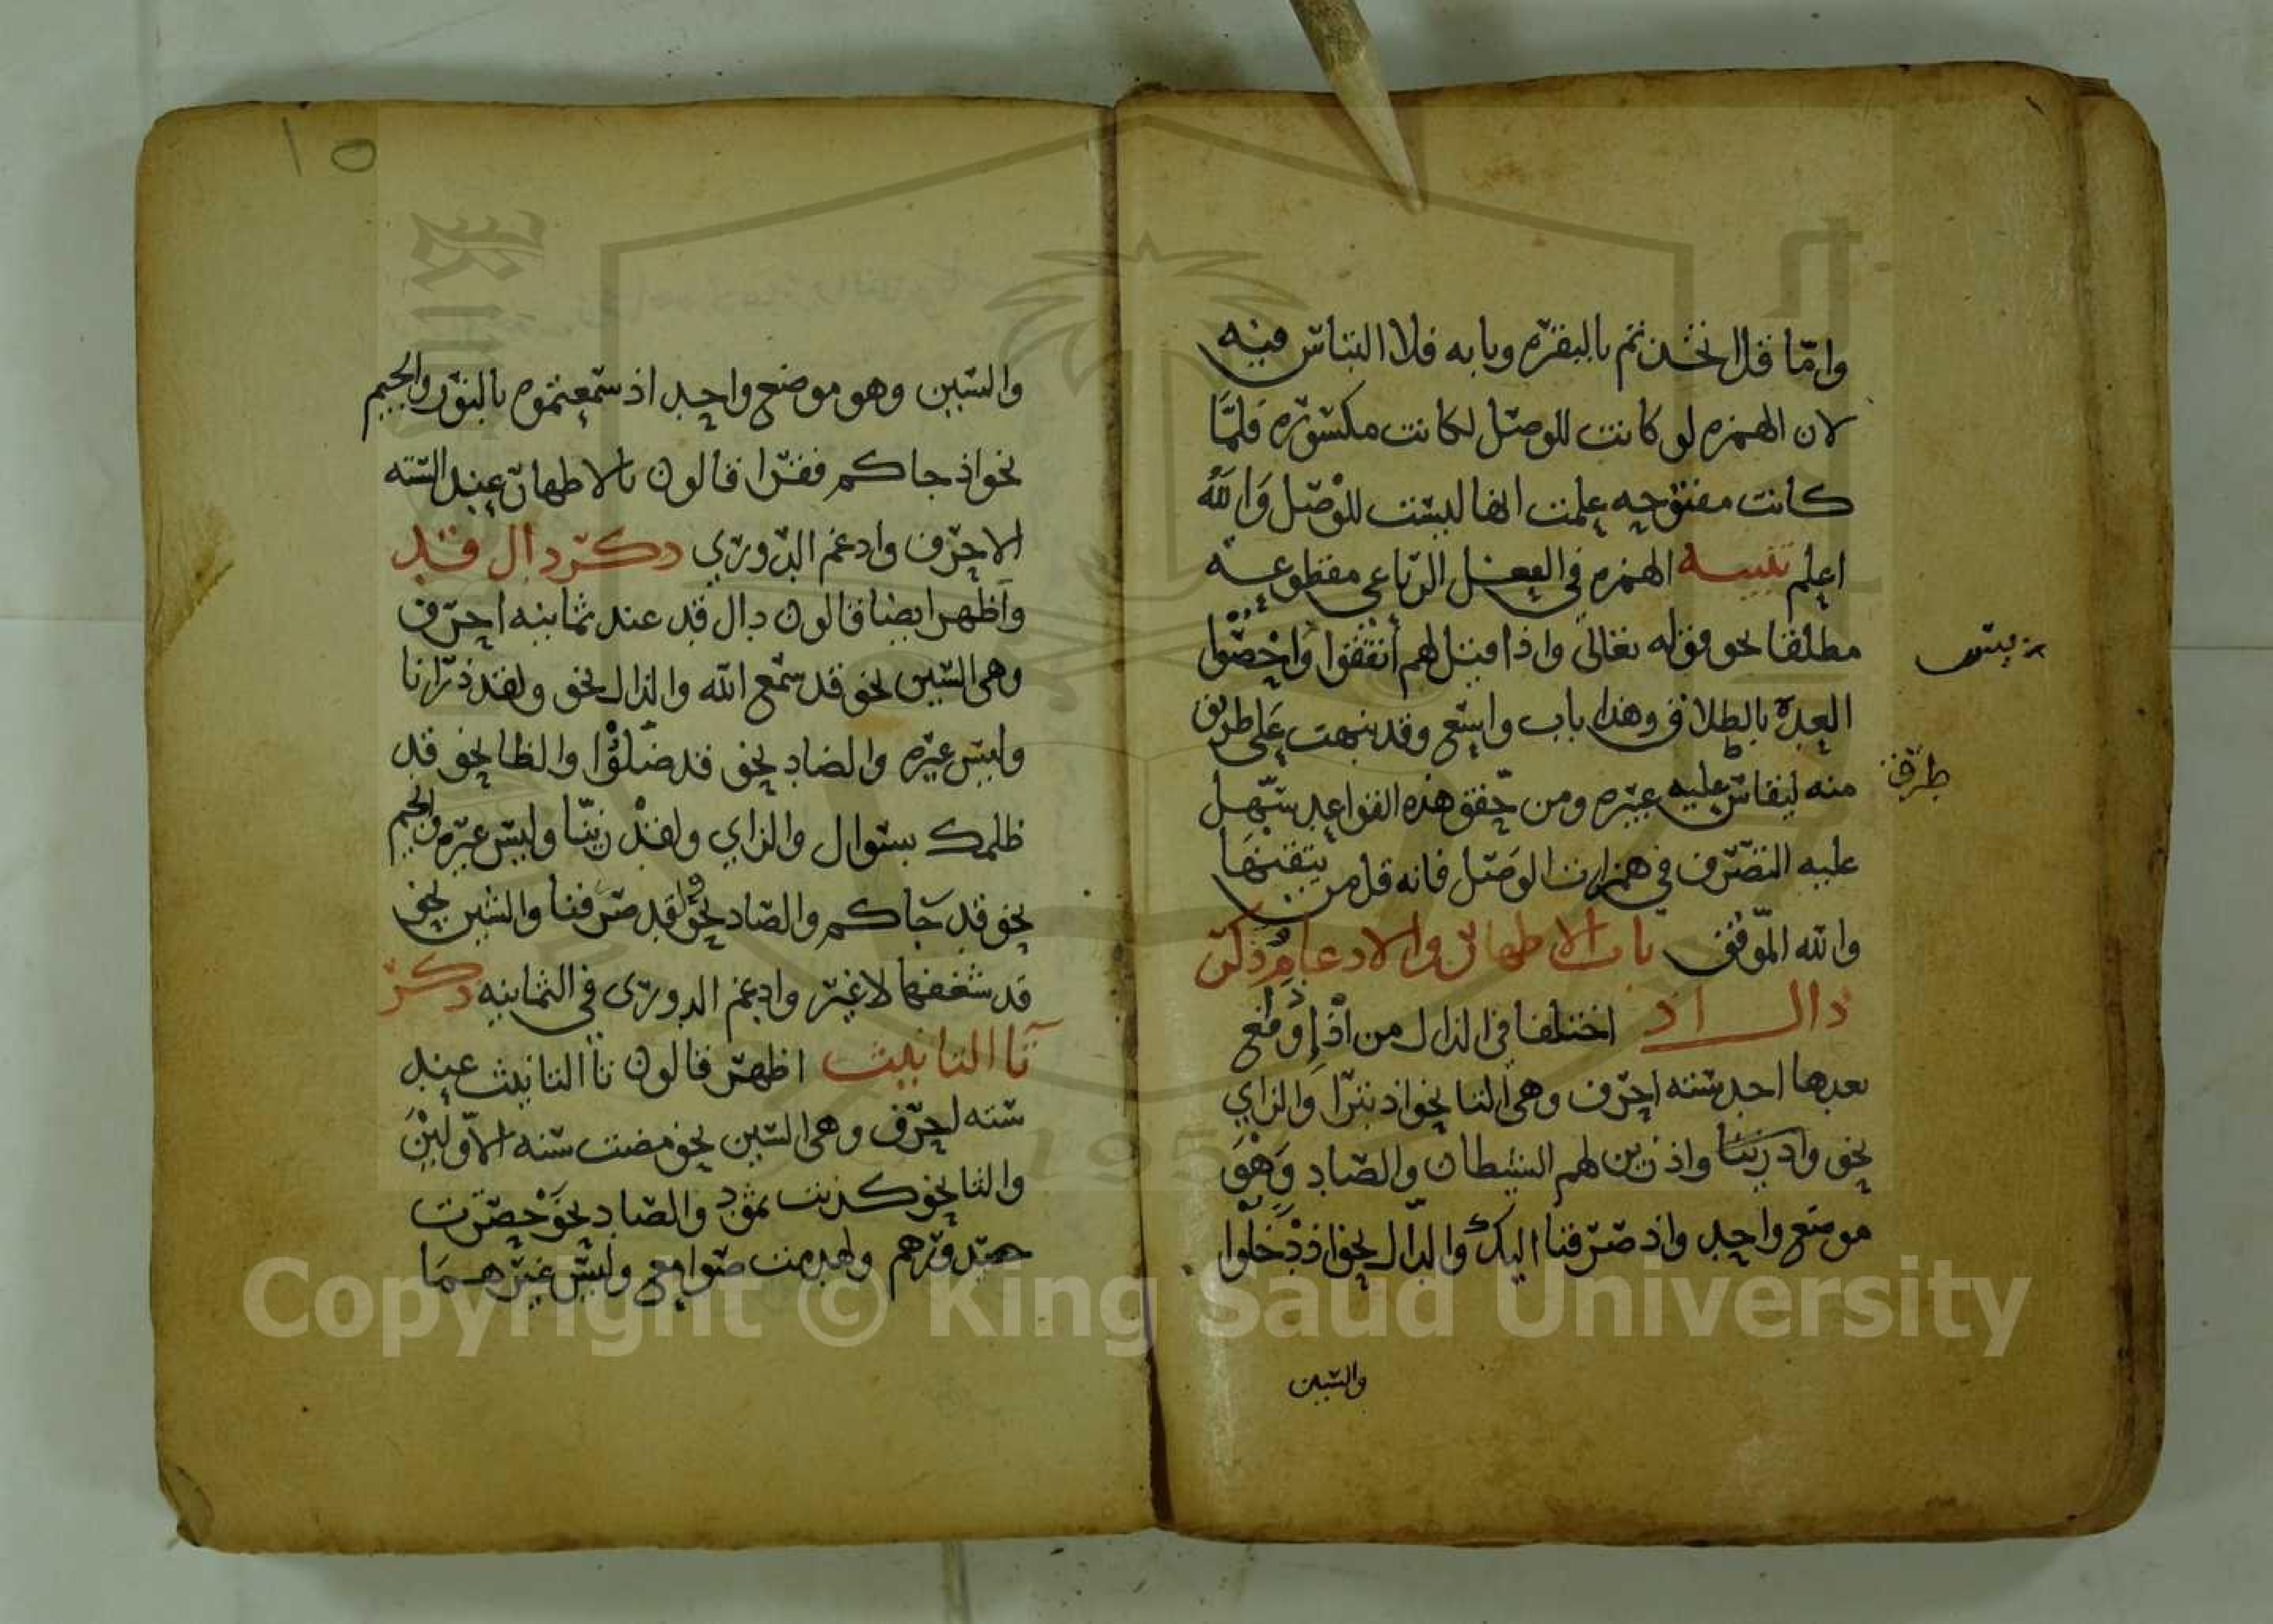 وامّا قل اتخذتم بالبقره وبابه فلا التباس فيه
لان الهمزه لو كانت للوصل لكانت مكسوره فلمّا
كانت مفتوحه علمت انها ليست للوصل والله
اعلم تنبيه الهمزه في الفعل الرباعي مقطوعه
مطلقا نحو قوله تعالى واذا قيل لهم أنفقوا وأحصوا
العده بالطلاق وهذا باب واسع وقد نبهت على طريق
منه ليقاس عليه غيره ومن حقق هذه القواعد سهل
عليه التصرف في همزات الوصل فانه قل من يتقنها
والله الموفق باب الاظهار والادغام ذكر
ذال اذ اختلفا في الذال من اذ إذا وقع
بعدها احد سته احرف وهي التا نحو اذ تبرا والزاي
نحو واذ زين لهم الشيطان والصاد وهو
موضع واحد واذ صرفنا اليك والدال نحو اذ دخلوا
طرف
والسين
١٥
والسين وهو موضع واحد اذ سمعتموه بالنور والجيم
نحو اذ جاكم فقرا قالون بالاظهار عند السته
الاحرف وادغم الدوري ذكر دال قد
واظهر ايضا قالون دال قد عند ثمانيه احرف
وهي السين نحو قد سمع الله والذال نحو ولقد ذرانا
وليس غيره والضاد نحو قد ضلوا والظا نحو قد
ظلمك بسوال والزاي ولقد زينا وليس غيره والجيم
نحو قد جاكم والصاد نحو ولقد صرفنا والشين نحو
قد شغفها لا غير وادغم الدوري في الثمانيه ذكر
تا التانيث اظهر قالون تا التانيث عند
سته احرف وهي السين نحو مضت سنه الاولين
والثا نحو كذبت ثمود والصاد نحو حصرت
صدورهم ولهدمت صوامع وليس غيرهما
Copyright © King Saud University